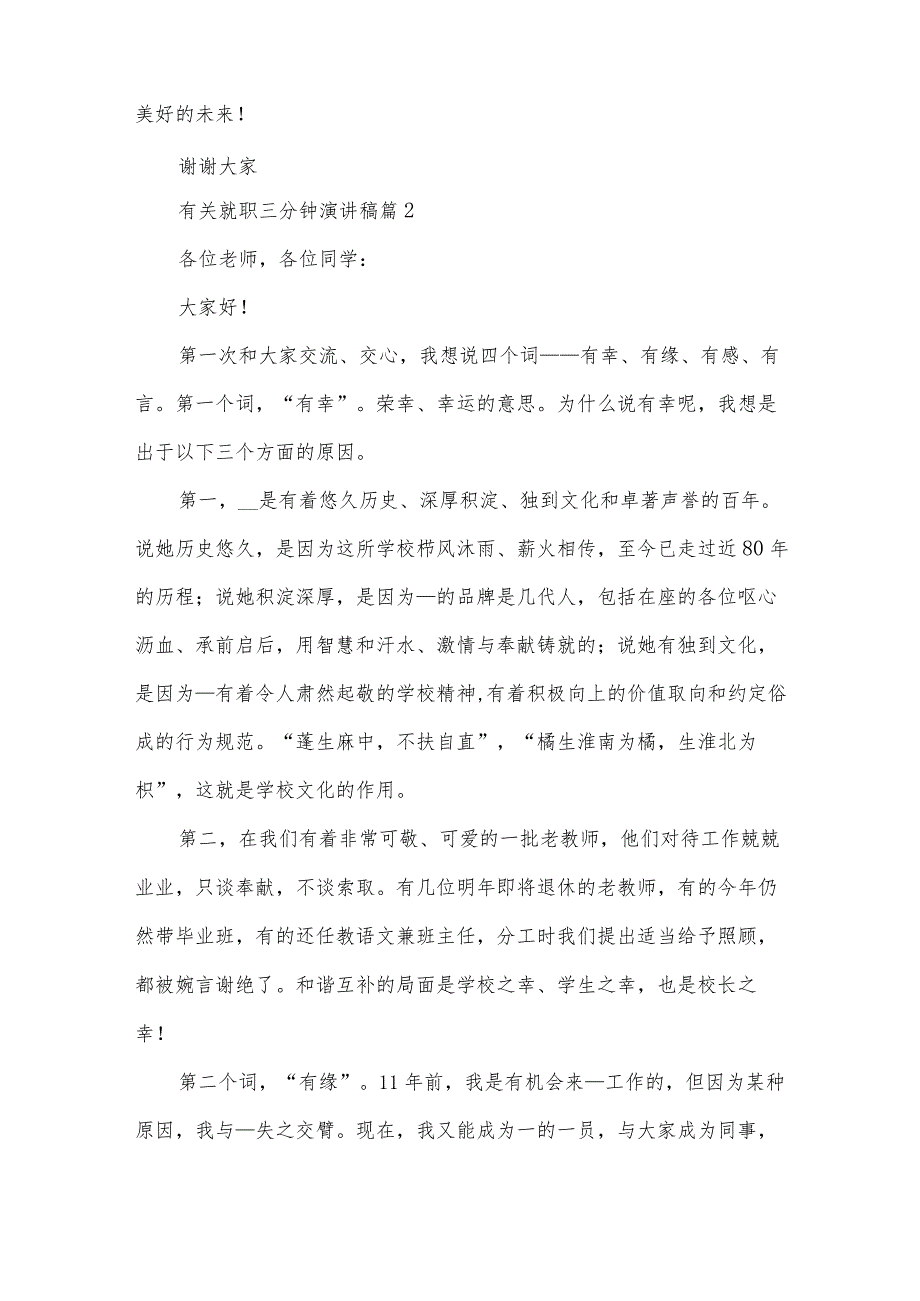 美好的未来！
谢谢大家
有关就职三分钟演讲稿篇2
各位老师，各位同学：
大家好！
第一次和大家交流、交心，我想说四个词——有幸、有缘、有感、有
言。第一个词，“有幸”。荣幸、幸运的意思。为什么说有幸呢，我想是
出于以下三个方面的原因。
第一，__是有着悠久历史、深厚积淀、独到文化和卓著声誉的百年。
说她历史悠久，是因为这所学校栉风沐雨、薪火相传，至今已走过近80年
的历程；说她积淀深厚，是因为—的品牌是几代人，包括在座的各位呕心
沥血、承前启后，用智慧和汗水、激情与奉献铸就的；说她有独到文化，
是因为—有着令人肃然起敬的学校精神,有着积极向上的价值取向和约定俗
成的行为规范。“蓬生麻中，不扶自直”，“橘生淮南为橘，生淮北为
枳”，这就是学校文化的作用。
第二，在我们有着非常可敬、可爱的一批老教师，他们对待工作兢兢
业业，只谈奉献，不谈索取。有几位明年即将退休的老教师，有的今年仍
然带毕业班，有的还任教语文兼班主任，分工时我们提出适当给予照顾，
都被婉言谢绝了。和谐互补的局面是学校之幸、学生之幸，也是校长之
幸！
第二个词，“有缘”。11年前，我是有机会来—工作的，但因为某种
原因，我与—失之交臂。现在，我又能成为一的一员，与大家成为同事，